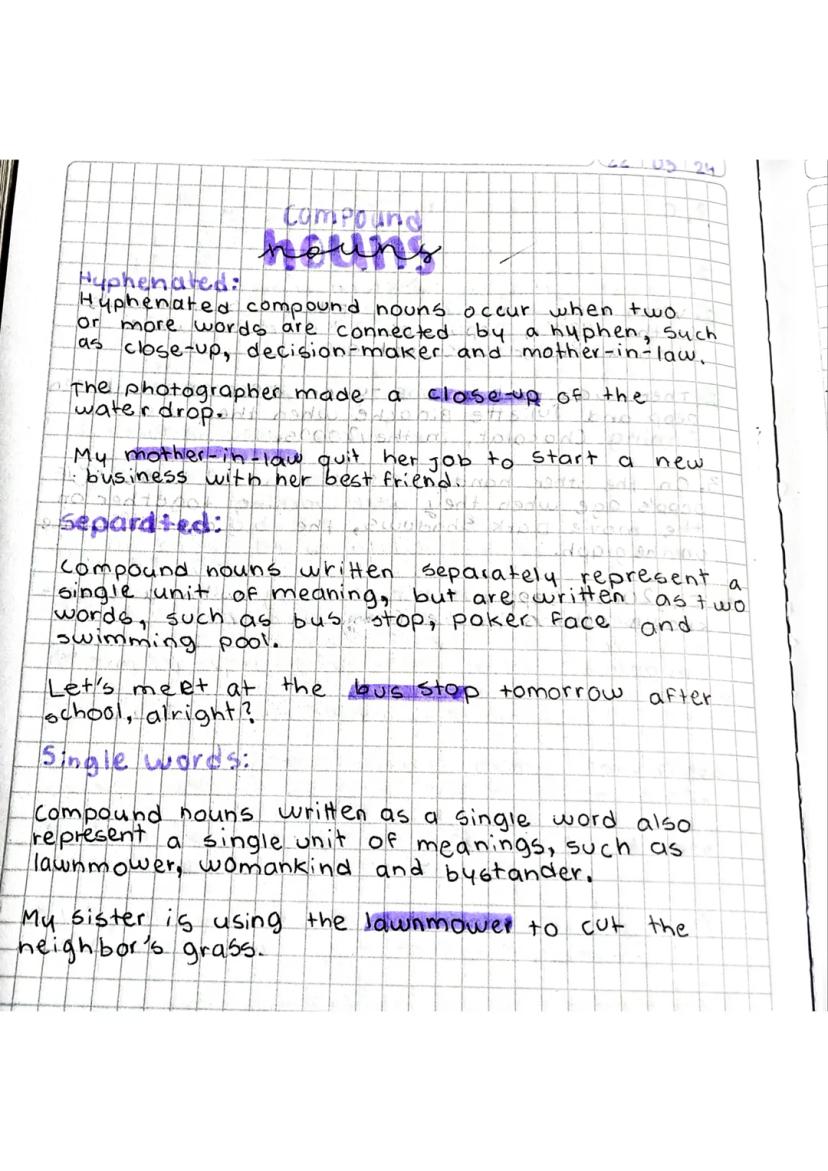 03 24
Compound
nouns
Hyphenated:
Hyphenated compound nouns occur when two
or more words are connected by a hyphen, such
as close-up, decision-maker and mother-in-law.
The photographer made a close-up of the
water drop.
My mother-in-law quit her job to start a new
business with her best friend.
Separated:
Compound nouns written separately represent a
single unit of meaning, but are written as two
words, such as bus stop, poker face and
swimming pool.
Let's meet at the bus stop tomorrow after
school, alright?
Single words:
Compound nouns written as a single word also
represent a single unit of meanings, such as
lawnmower, womankind and bystander.
My sister is using the lawnmower to cut the
neighbor's grass.